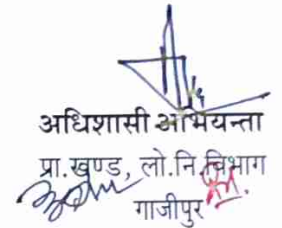 अधिशासी अभियन्ता
प्रा.खण्ड, लो.नि.विभाग
गाजीपुर